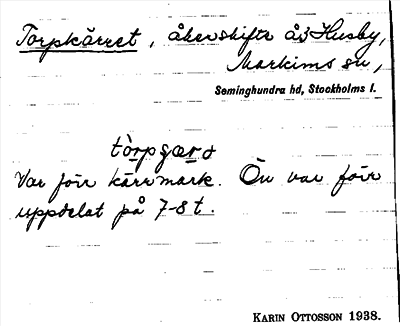 Torpkärret, åkerskifte å 3 Husby,
Markims sn,
Seminghundra hd, Stockholms l.
tòrpgærd
Var förr kärrmark. Ön var förr
uppdelat på 7-8 t.
KARIN OTTOSSON 1938.